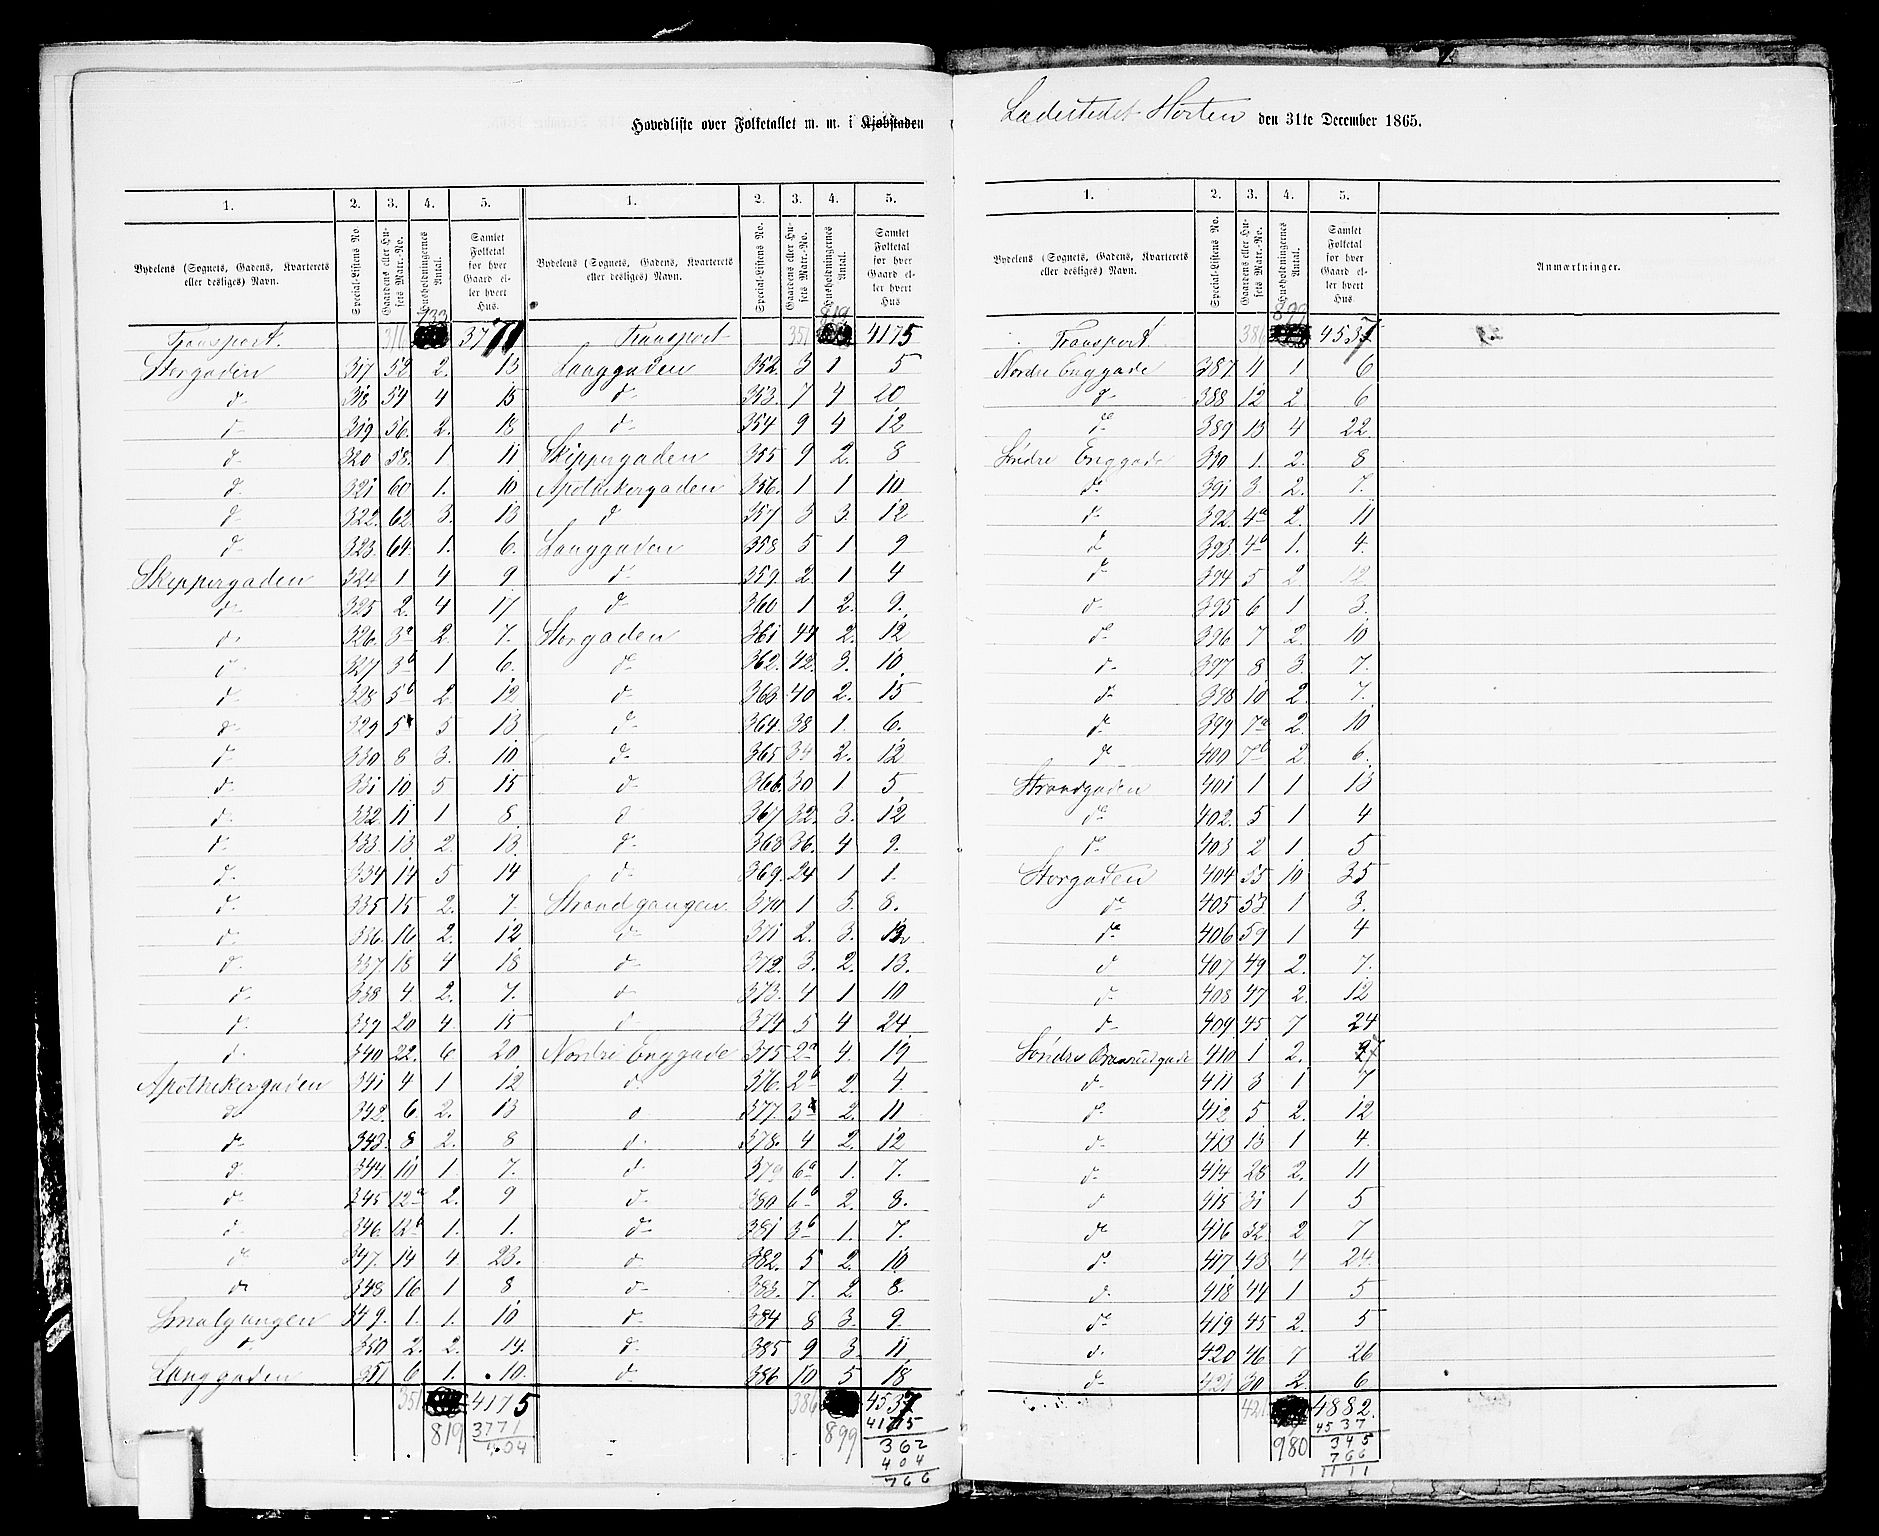 Hovedliste over Folketallet m. m. i Kjøbstaden Ladestedet Horten den 31te December 1865.
1. 2. 3. 4. 5. 1. 2. 3. 4. 5.
Bydelens (Sognets, Gadens, Kvarterets eller desliges) Navn. Special-Listens No. Gaardens eller Husets Matr.-No. Husholdningernes Antal. Samlet Folketal for hver Gaard eller hvert Hus. Bydelens (Sognets, Gadens, Kvarterets eller desliges) Navn. Special-Listens No. Gaardens eller Husets Matr.-No. Husholdningernes Antal. Samlet Folketal for hver Gaard eller hvert Hus
Transport. 316 733 3771 Transport 351 819 4175
Storgaden 317 52 2. 13 Langgaden 352. 3 1 5
d- 318 54 4 15 d- 353. 7 4 20
d- 319 56. 2. 13 d- 354 9 4 12
d- 320 58. 1 11 Skippergaden 355 9 2. 8
d- 321 60 1. 10 Apothekergaden 356. 1 1 10
d- 322. 62. 3. 13 d- 357 3 3. 12
d- 323. 64. 1. 6. Langgaden 358 5 1 9
Skippergaden 324 1 4 9 d- 359. 2. 1 4
d- 325 2. 4 17 d- 360 1 2. 9.
d- 326. 3a 2. 7. Storgaden 361 44 2. 12
d- 327 3b 1 6. d- 362. 42. 3. 10
d- 328 5b 2. 12 d- 363 40 2. 15
d- 329 5a 5 13 d- 364. 38 1. 6.
d- 330 8 3. 10 d- 365 34 2. 12
d- 331 10 5 15 d- 366. 30 1 5
d- 332. 11 1 8. d 367 32. 3. 12
d- 333. 13 2. 13. d- 368 36. 4 9.
d- 334 14 5 14 d- 369. 24 1 1.
d- 335 15 2. 7. Strandgangen 370 1 3. 8.
d- 336. 16 2. 12 d- 371 2. 3.
d- 337 18 4 18 d- 372. 3. 2. 13.
d- 338 4. 2. 7. d- 373. 4 1 10
d- 339 20 4. 15 d- 374 5 4 24
d. 340 22. 6 20 Nordre Enggade 375 2a 4. 19
Apothekergaden 341 4 1 12 d- 376. 2b 2. 4.
d- 342. 6. 2. 13 d 377. 3a 2. 11
d- 343. 8 2. 8 d- 378. 4 2. 12
d- 344. 10 1 7. d- 379 6a 1. 7.
d- 345 12a 2. 9 d- 380 6b 2. 3.
d- 346. 12b 1. 1. d- 381 3b 1. 7.
d- 347. 14 4 23. d- 382. 5 2. 10
d- 348 16. 1 8 d- 383. 7. 2 8.
Smalgangen 349. 1. 1. 10 d- 384 8 3. 9.
d. 350 2. 2. 14. d- 385 9 3. 11
Langgaden 351 6 1. 10. d- 386 10 5 18
351 4175 386 4537
819 3771 899 4175
404 362
404
766
1. 2. 3. 4. 5.
Bydelens (Sognets, Gadens, Kvarterets eller desliges) Navn. Special-Listens No. Gaardens eller Husets Matr.-No. Husholdningernes Antal. Samlet Folketal for hver Gaard eller hvert Hus. Anmærkninger.
Transport. 386 899 4537
Nordre Enggade 387. 11 1 6
d- 388 12 2 6
d- 389 13 4 22.
Søndre Enggade 390 1. 2. 8
d- 391 3. 2. 7.
d- 392. 4a 2. 11
d- 393. 4b 1. 4.
d- 394 5 2 12
d- 395 6 1 3.
d- 396 7 2. 10
d- 397 8 3 7.
d- 398 10 2 7.
d- 399 7a 2. 10
d- 400 7b 2 6.
Strandgaden 401 1 1 13
d- 402. 5 1 4
d- 403 2 1 5
Storgaden 404 55 10 35
d- 405 53 1 3.
d- 406 59 1 4
d 407 49 2. 7.
d- 408 47 2. 12
d- 409. 45 7 24
Søndre Braarudgade 410 1 2.
d- 411 3 1 7
d- 412 5 2. 12
d- 413 13 1 4.
d- 414 28 2. 11
d 415 31 1 5
d- 416 32 2 7
d- 417 43 4 24.
d. 418 44 1 5
d- 419 45 2. 5
d. 420 46 7 26
d- 421 30 2. 6
421 4882.
980 4537
345
766
1111